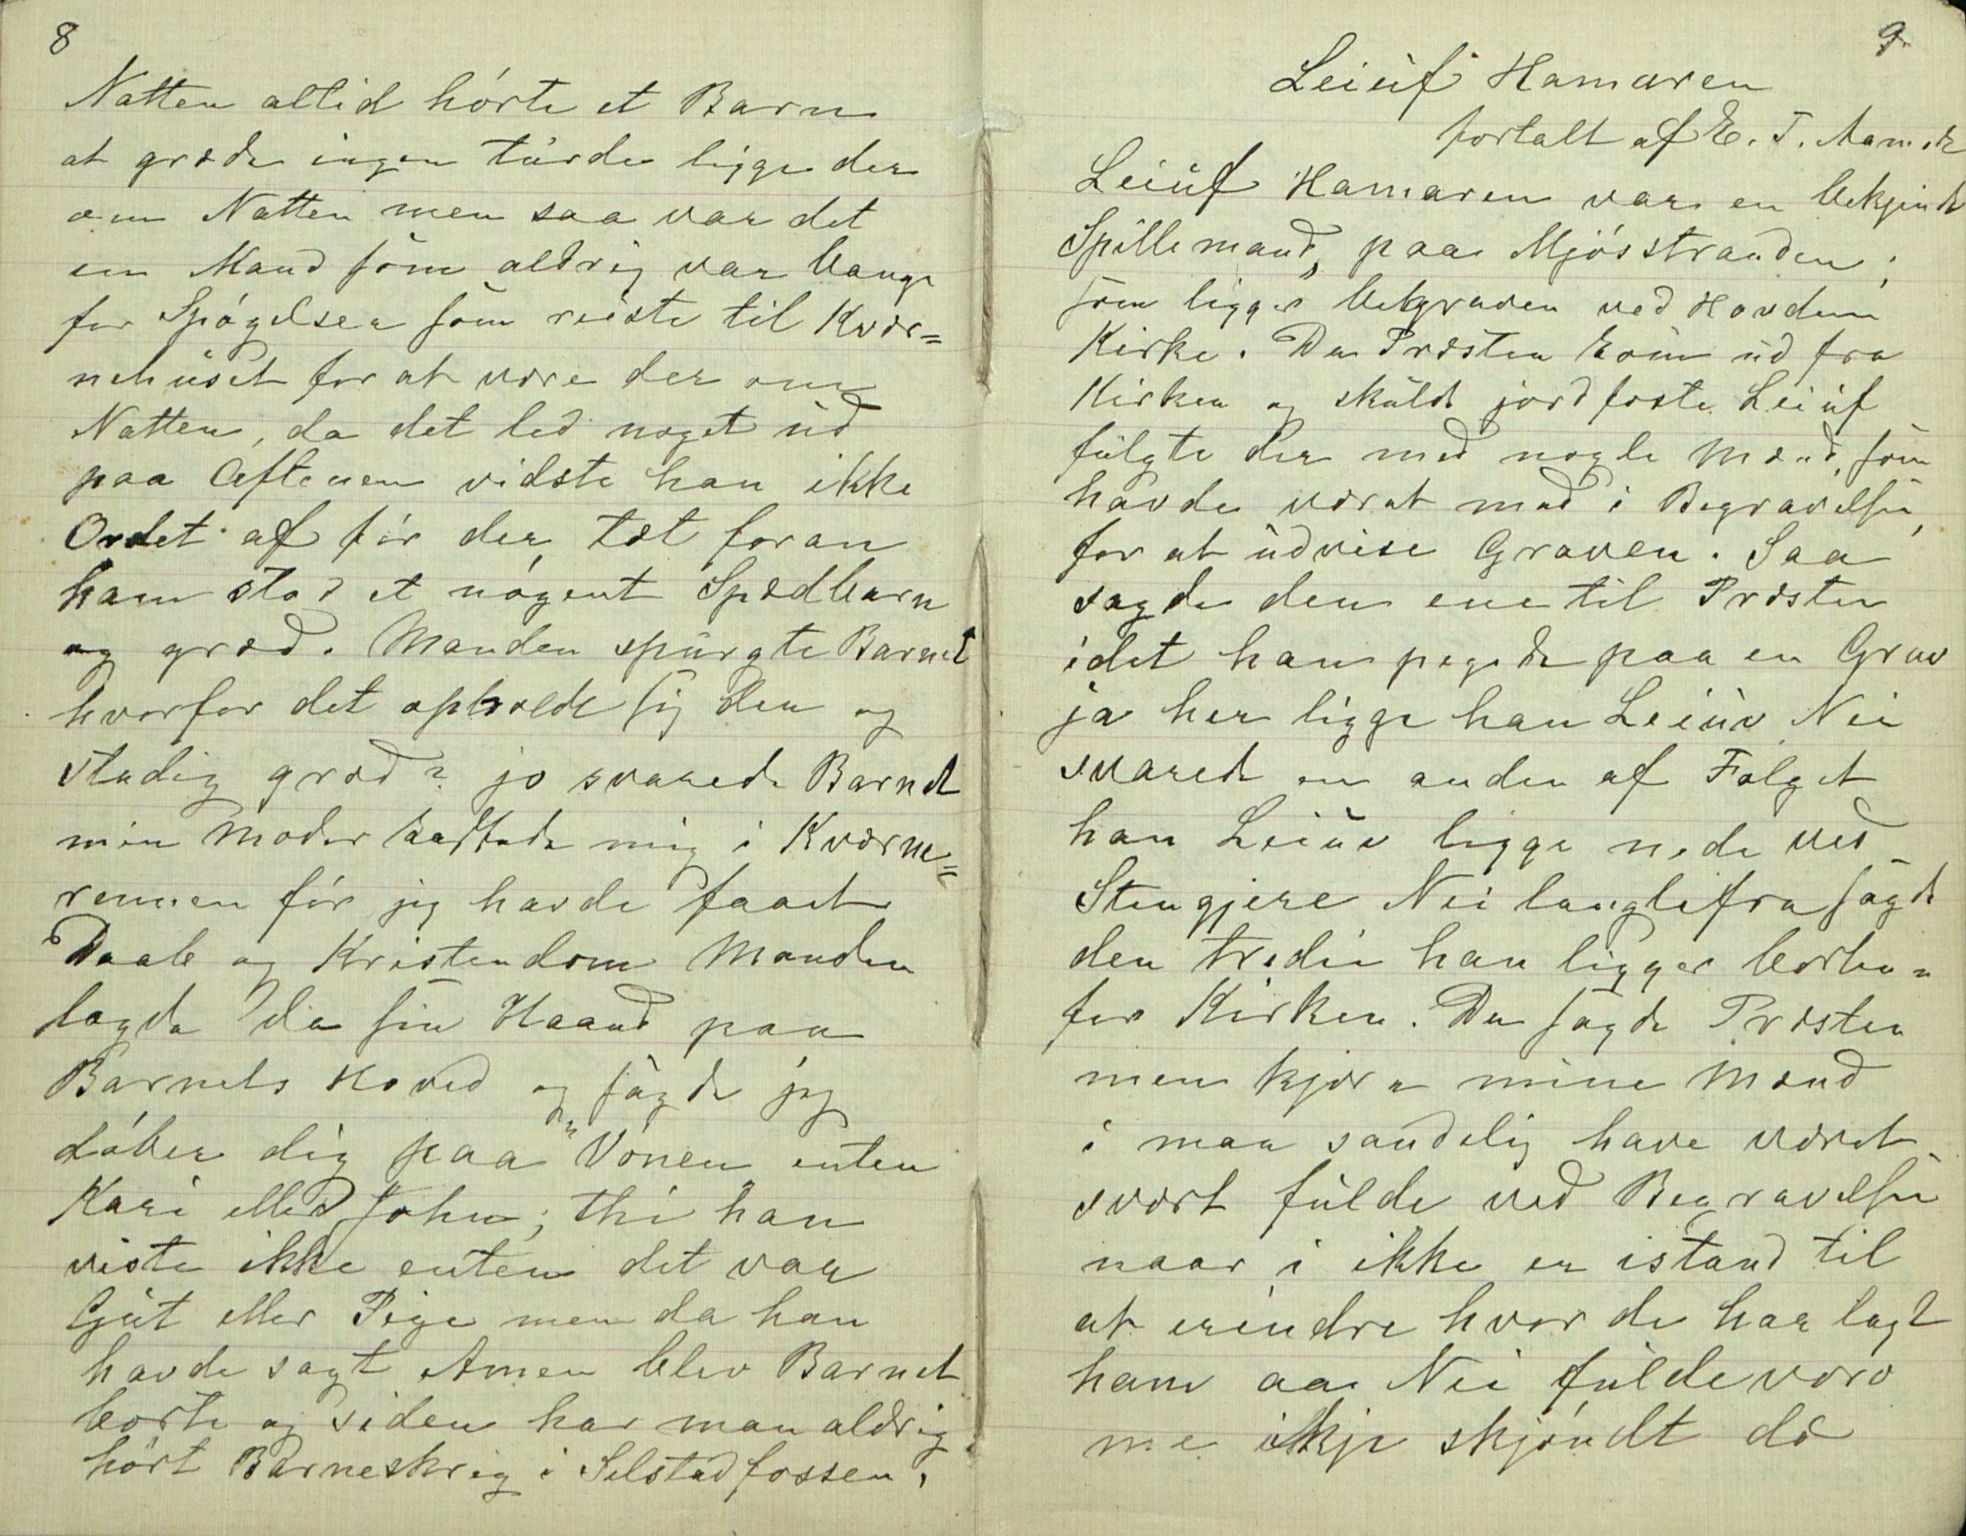 8
Natten altid hórte et Barn
at græde ingen türde ligge der
om Natten men saa var det
en Mand som aldrig var bange
for Spógelser som reiste til Kvær=
nehüset for at være der om
Natten, da det led noget üd
paa Aftenen vidste han ikke
Ordet af fór der tæt foran
ham stod et nógent Spædbarn
og græd. Manden spürgte Barnet
hvorfor det opholdt sig der og
stadig græd? jo svarede Barnet
min Moder kastede mig i Kværne=
rennen fór jeg havde faaet
Daab og Kristendom Manden
lagde da sin Haand paa
Barnets Hoved og sagde jeg
dóber dig paa "Vonen enten
Kari eller John; thi han
viste ikke enten det var
Gut eller Pige men da han
havde sagt Amen blev Barnet
borte og siden har man aldrig
hórt Barneskrig i Selstadfossen.
9
Leiüf Hamaren
fortalt af E. T.
Leiüf Hamaren var en bekjendt
Spillemand, paa Mjósstranden;
som ligger begraven ved Hovden
Kirke. Da Præsten kom üd fra
Kirken og skülde jordfæste Leiüf
fülgte der med nogle Mænd, som
havde været med i Begravelsen,
for at üdvise Graven. Saa
sagde den ene til Præsten
idet han pegede paa en Grav
ja her ligge han Leiüv Nei
svarede en anden af Følget
han Leiüv ligge nede ved
Stengjere Nei langtifra sagde
den tredie han ligger borten
for Kirken. Da sagde Præsten
men kjære mine Mænd
i maa sandelig have været
svært fülde ved Begravelsen
naar i ikke er istand til
at erindre hvor de har lagt
ham aa Nei fülde voro
me ikkje skjóndt do